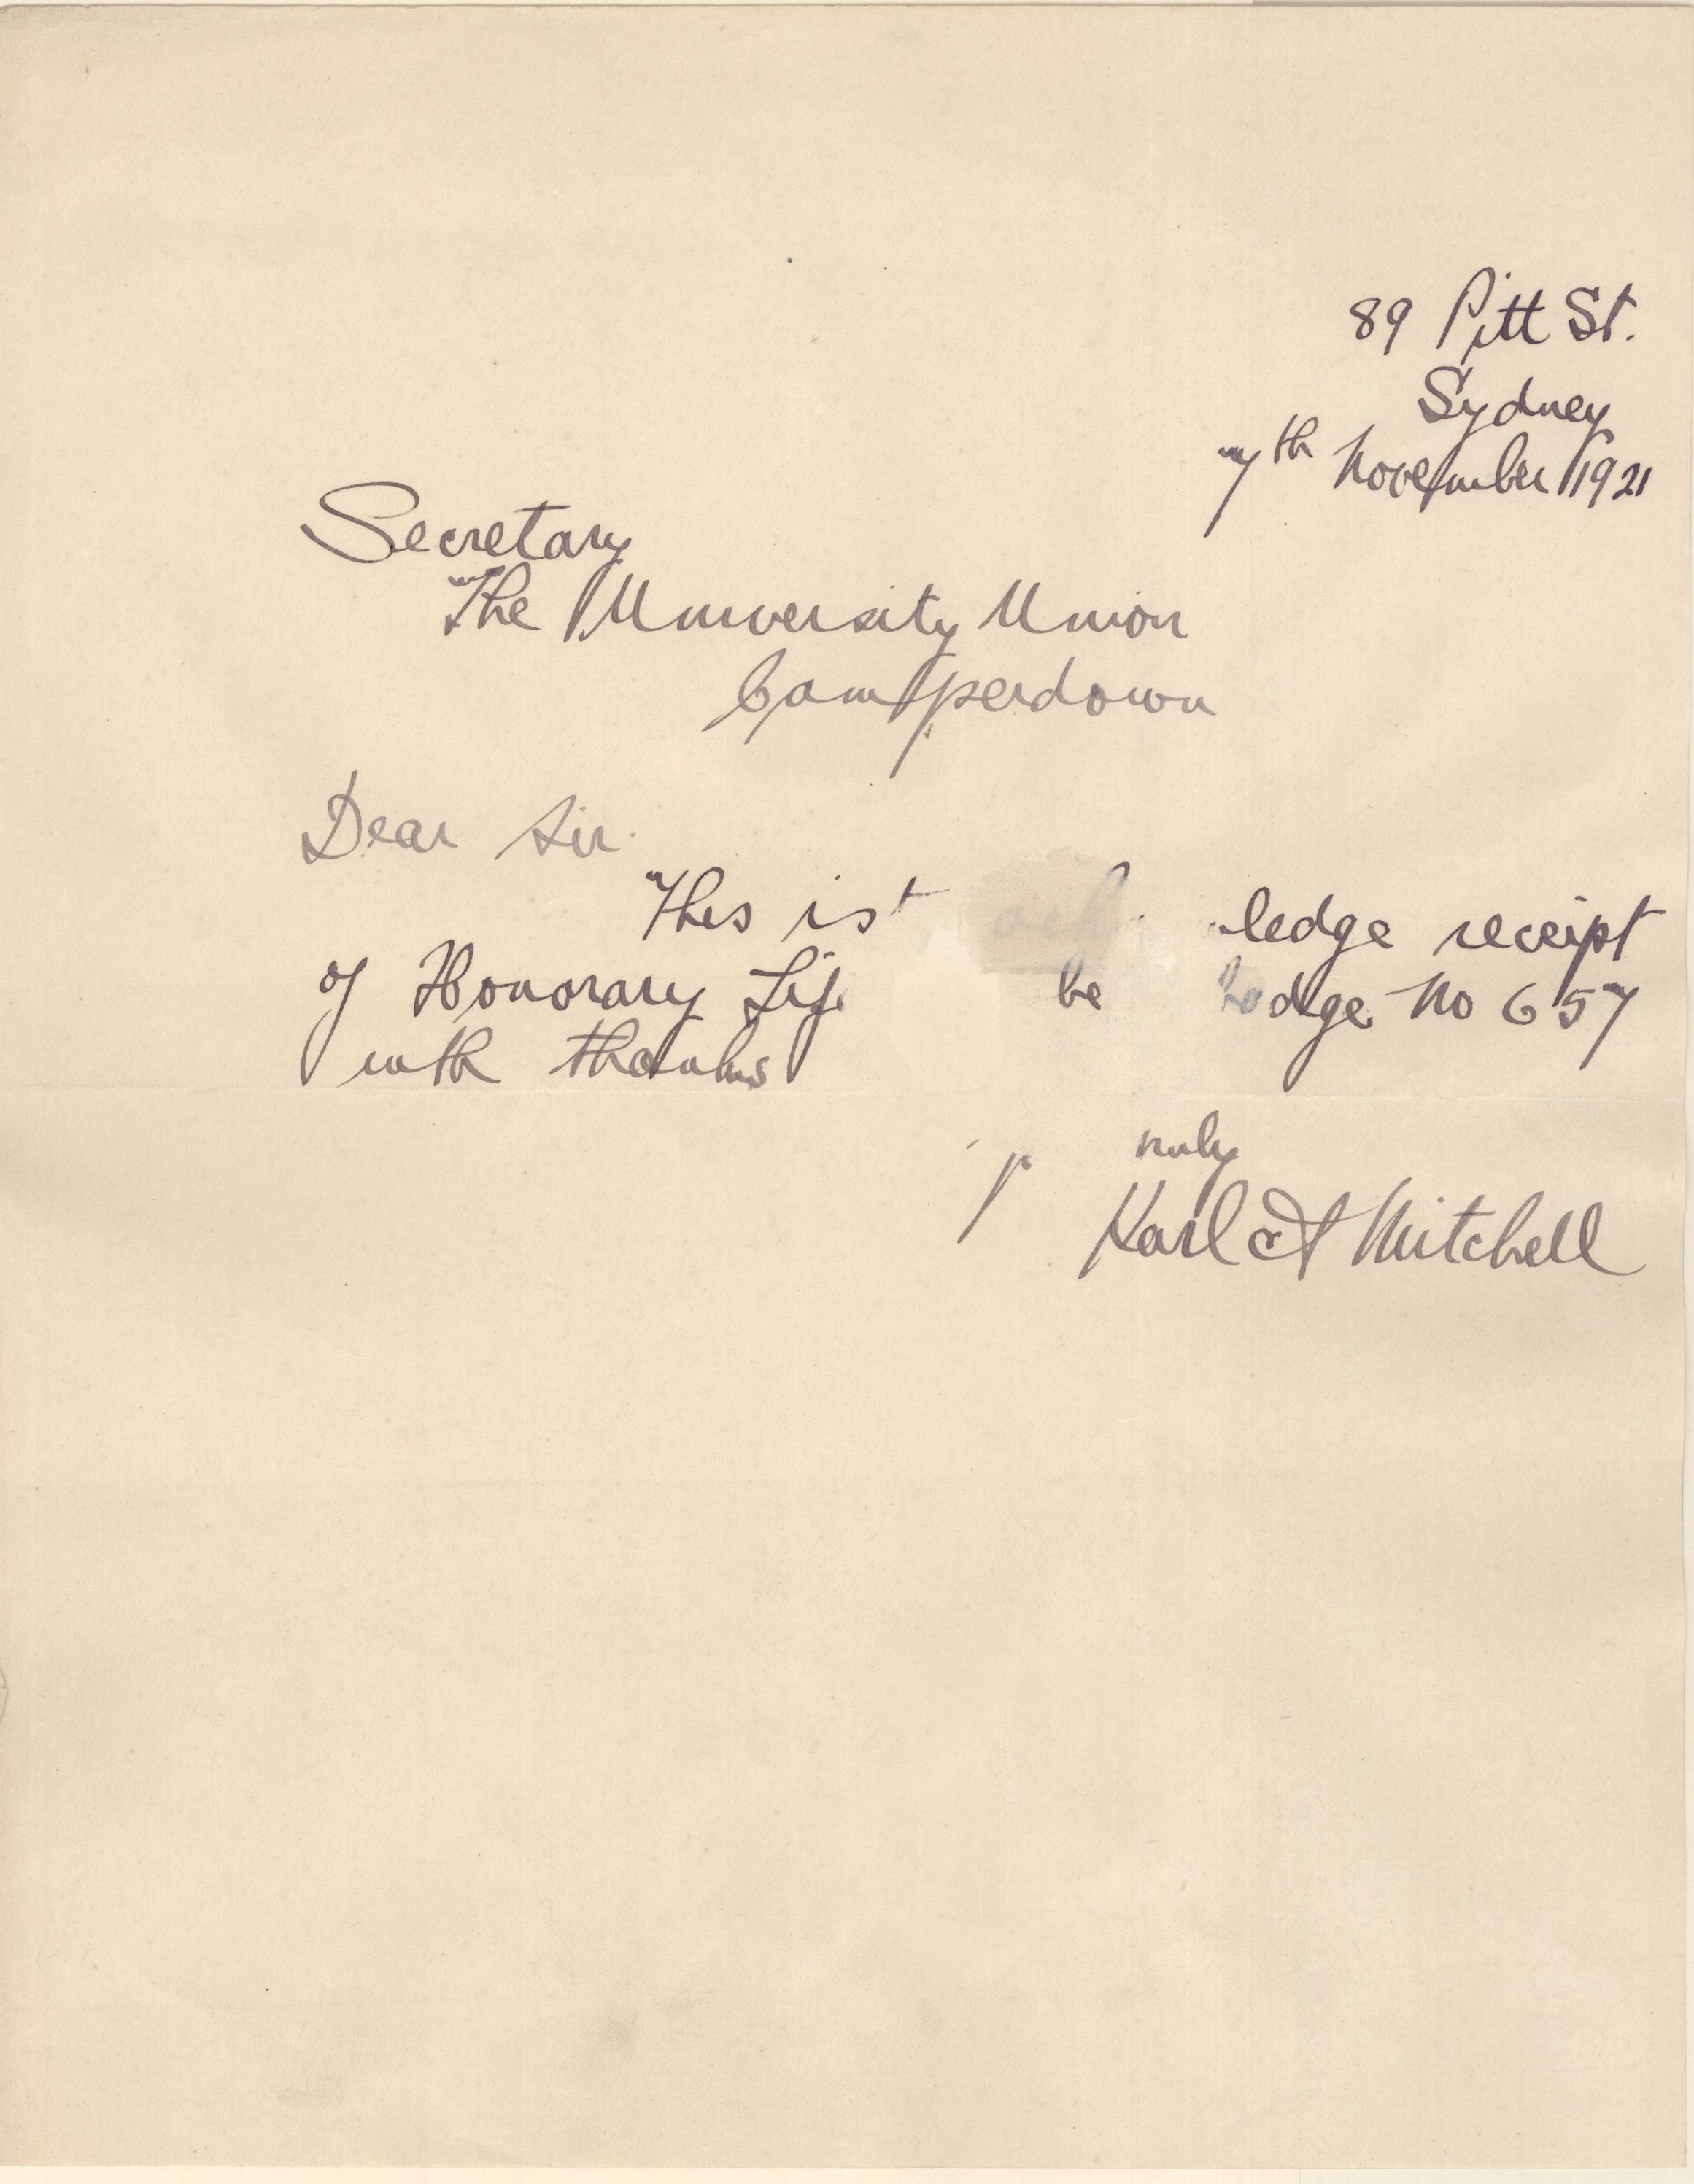 89 Pitt St.
Sydney
7th November 1921
Secretary
The University Union
Camperdown
Dear Sir.
This is t ack ledge receipt
of Honorary Life be badge No 657
with thanks
truly
Karl A Mitchell